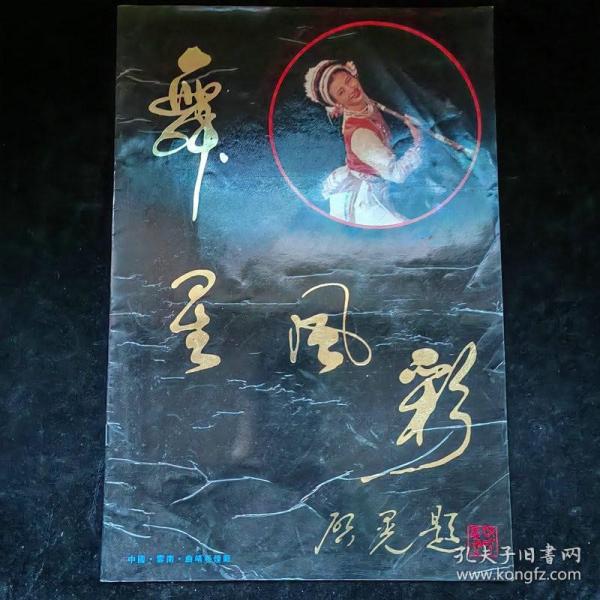 舞
星风
彩
题
中國·雲南·曲靖卷煙廠
孔夫子旧书网
www.kongfz.com